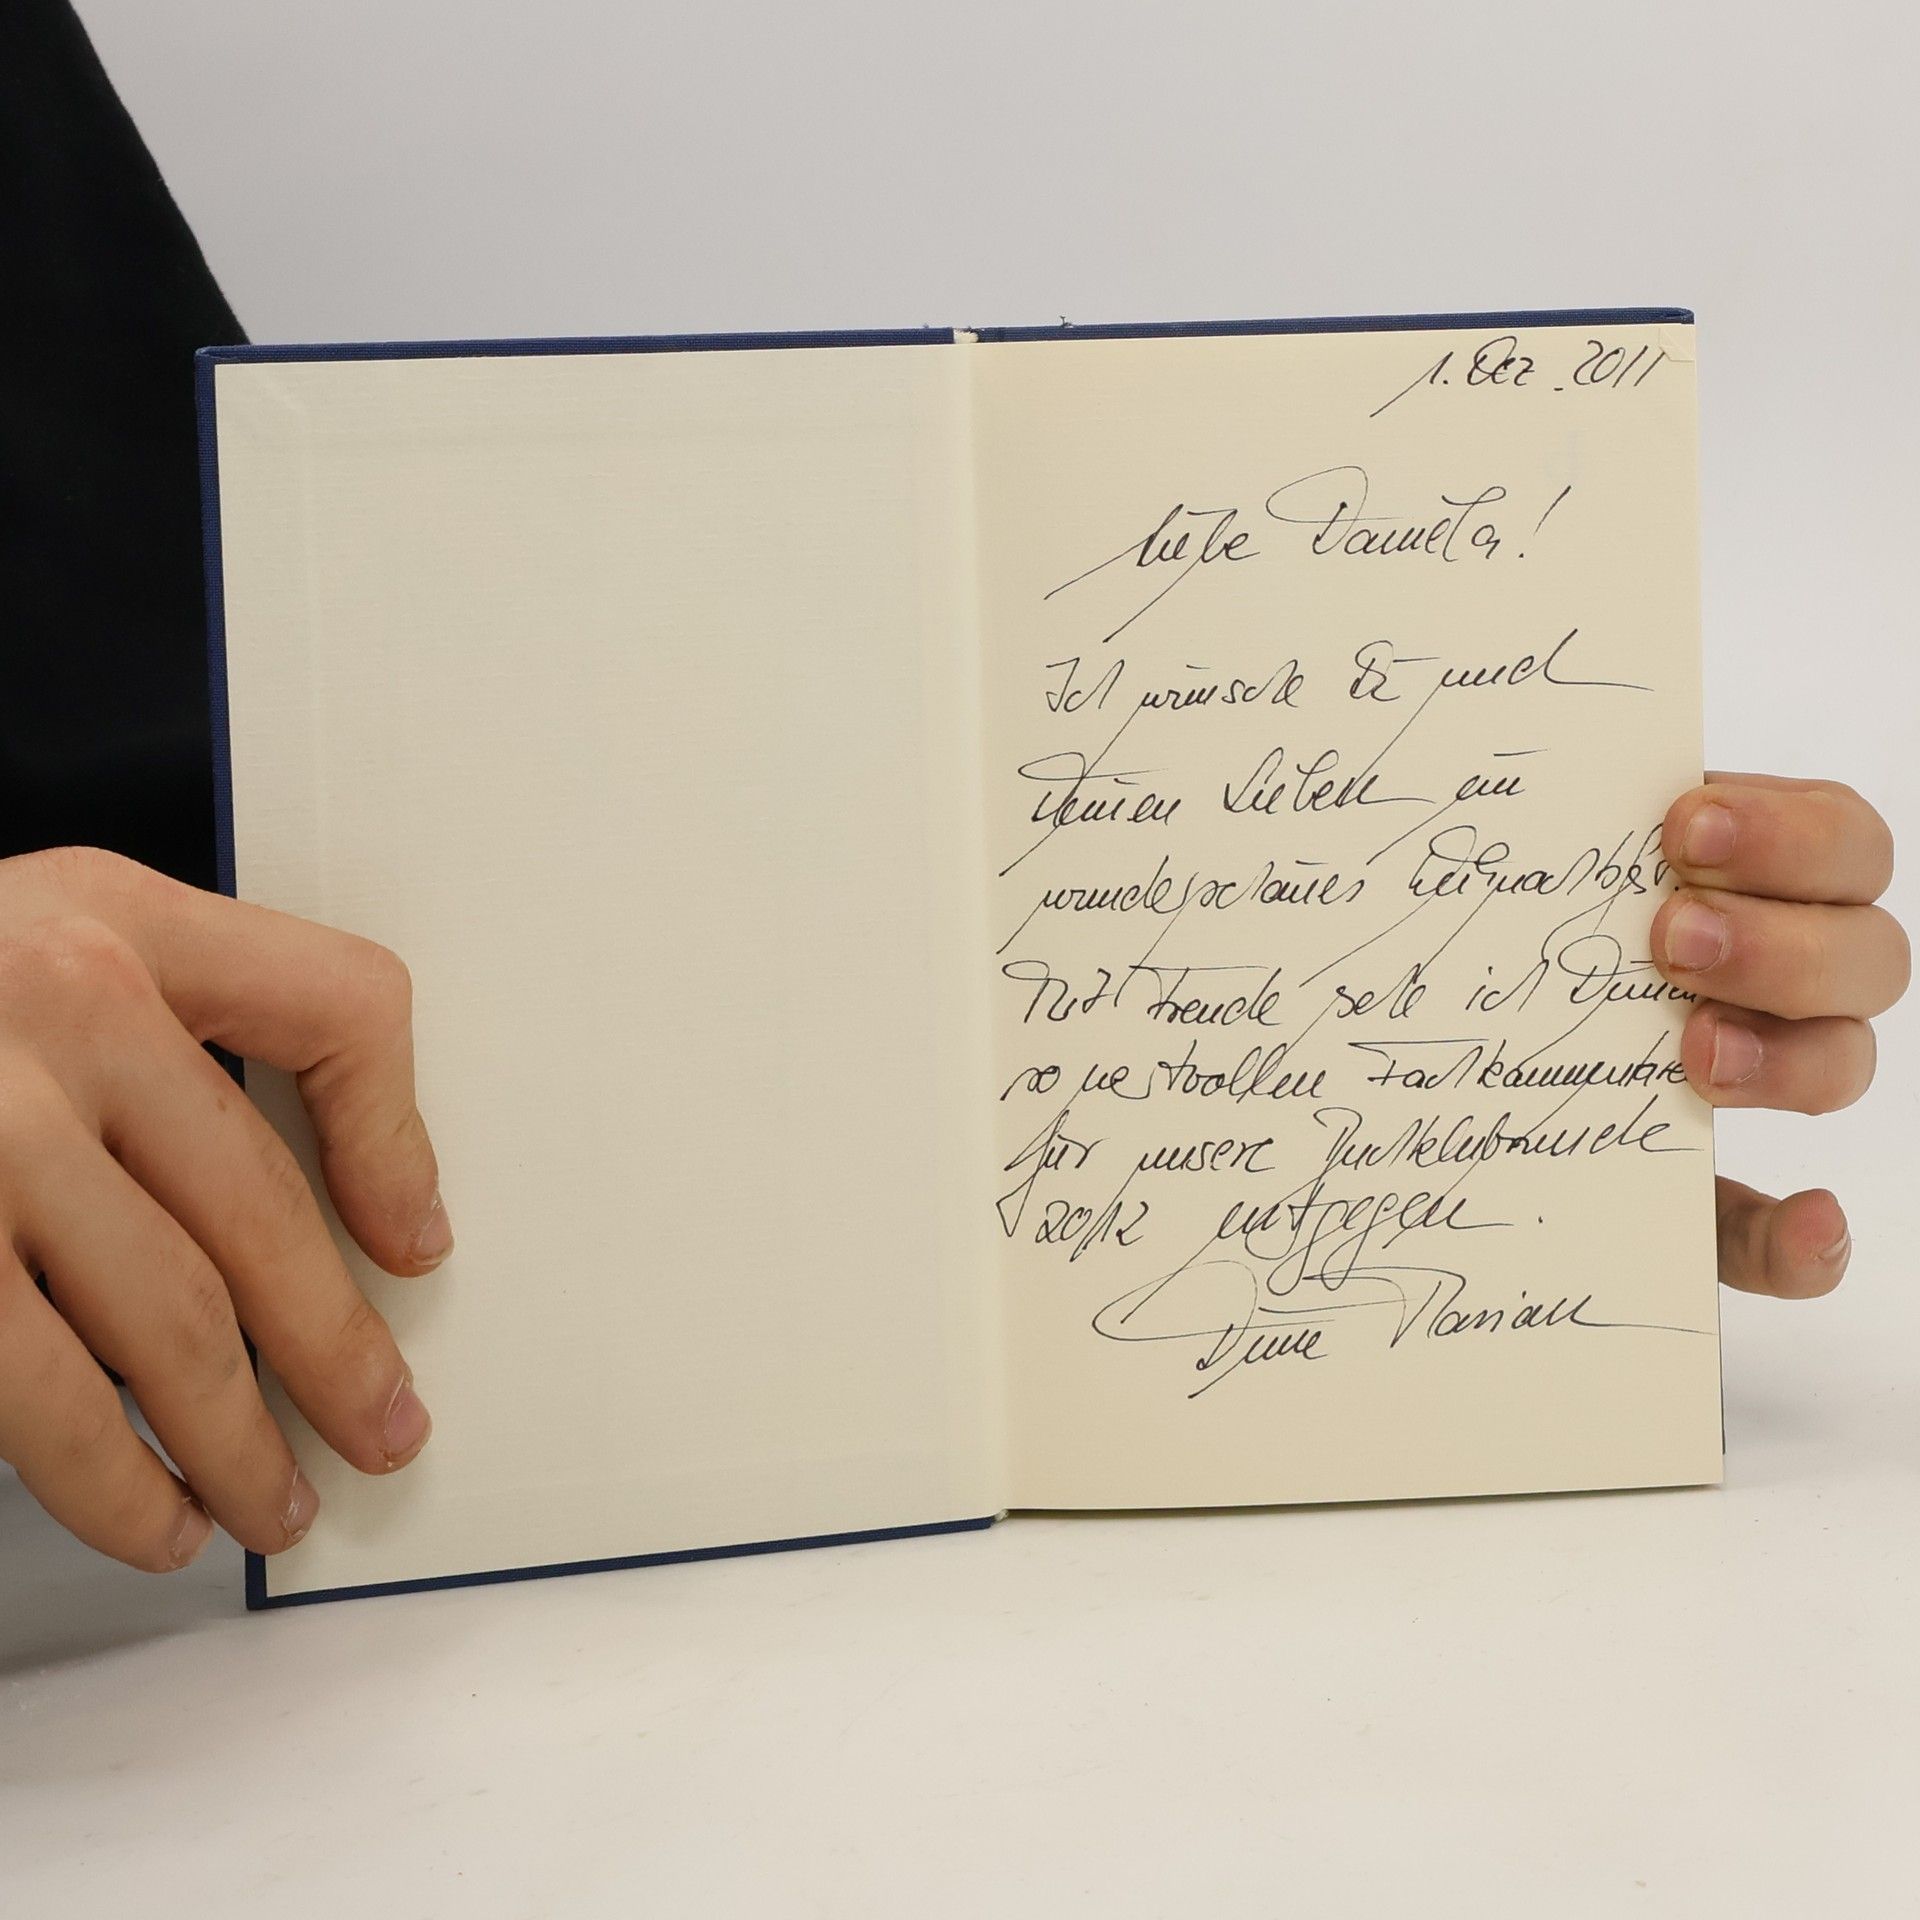 1. Dez. 2011
Liebe Daniela!
Ich wünsche Dir und
Deinen Lieben ein
wunderschönes Weihnachtsfest.
Mit Freude sehe ich Deinen
so wertvollen Fachkommentaren
für unsere
2012 entgegen.
Deine Marian